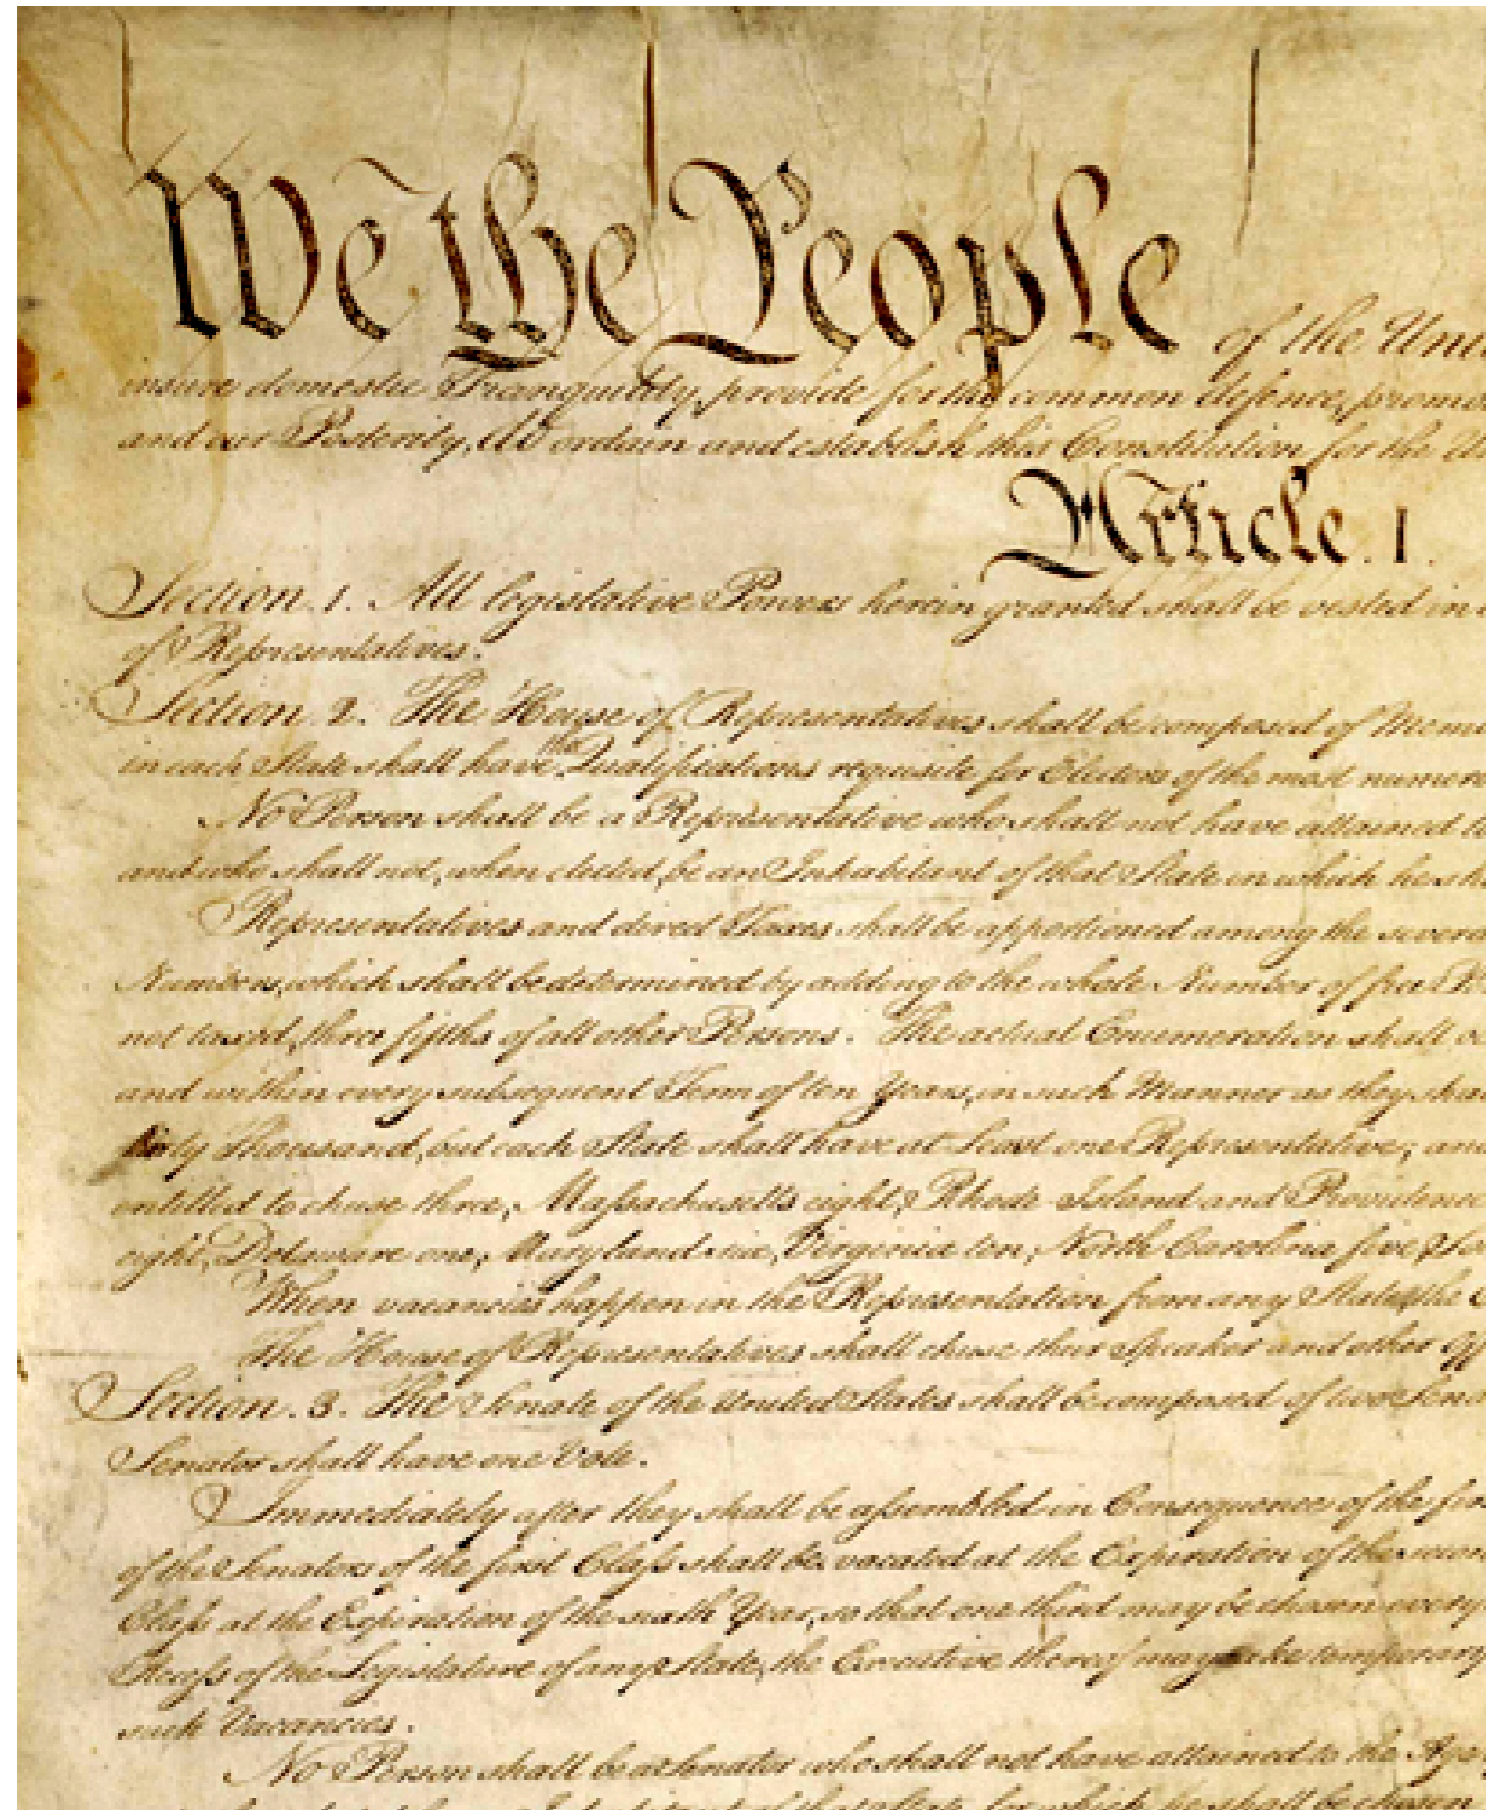 We the People of the Uni
insure domestic Tranquility, provide for the common defence, promo
and our Posterity, do ordain and establish this Constitution for the U
Article. I.
Section. 1. All legislative Powers herein granted shall be vested in a
of Representatives.
Section. 2. The House of Representatives shall be composed of Mem
in each State shall have the Qualifications requisite for Electors of the most numero
No Person shall be a Representative who shall not have attained to
and who shall not, when elected, be an Inhabitant of that State in which he sh
Representatives and direct Taxes shall be apportioned among the severa
Numbers, which shall be determined by adding to the whole Number of free Pe
not taxed, three fifths of all other Persons. The actual Enumeration shall be
and within every subsequent Term of ten Years, in such Manner as they shal
thirty Thousand, but each State shall have at Least one Representative; and
entitled to chuse three, Massachusetts eight, Rhode-Island and Providence
eight, Delaware one, Maryland six, Virginia ten, North Carolina five, So
When vacancies happen in the Representation from any State, the E
The House of Representatives shall chuse their Speaker and other Off
Section. 3. The Senate of the United States shall be composed of two Sena
Senator shall have one Vote.
Immediately after they shall be assembled in Consequence of the fir
of the Senators of the first Class shall be vacated at the Expiration of the secon
Class at the Expiration of the sixth Year, so that one third may be chosen every
Recess of the Legislature of any State, the Executive thereof may make temporary
such Vacancies.
No Person shall be a Senator who shall not have attained to the Age
Inhabitant of that State for which he shall be chosen